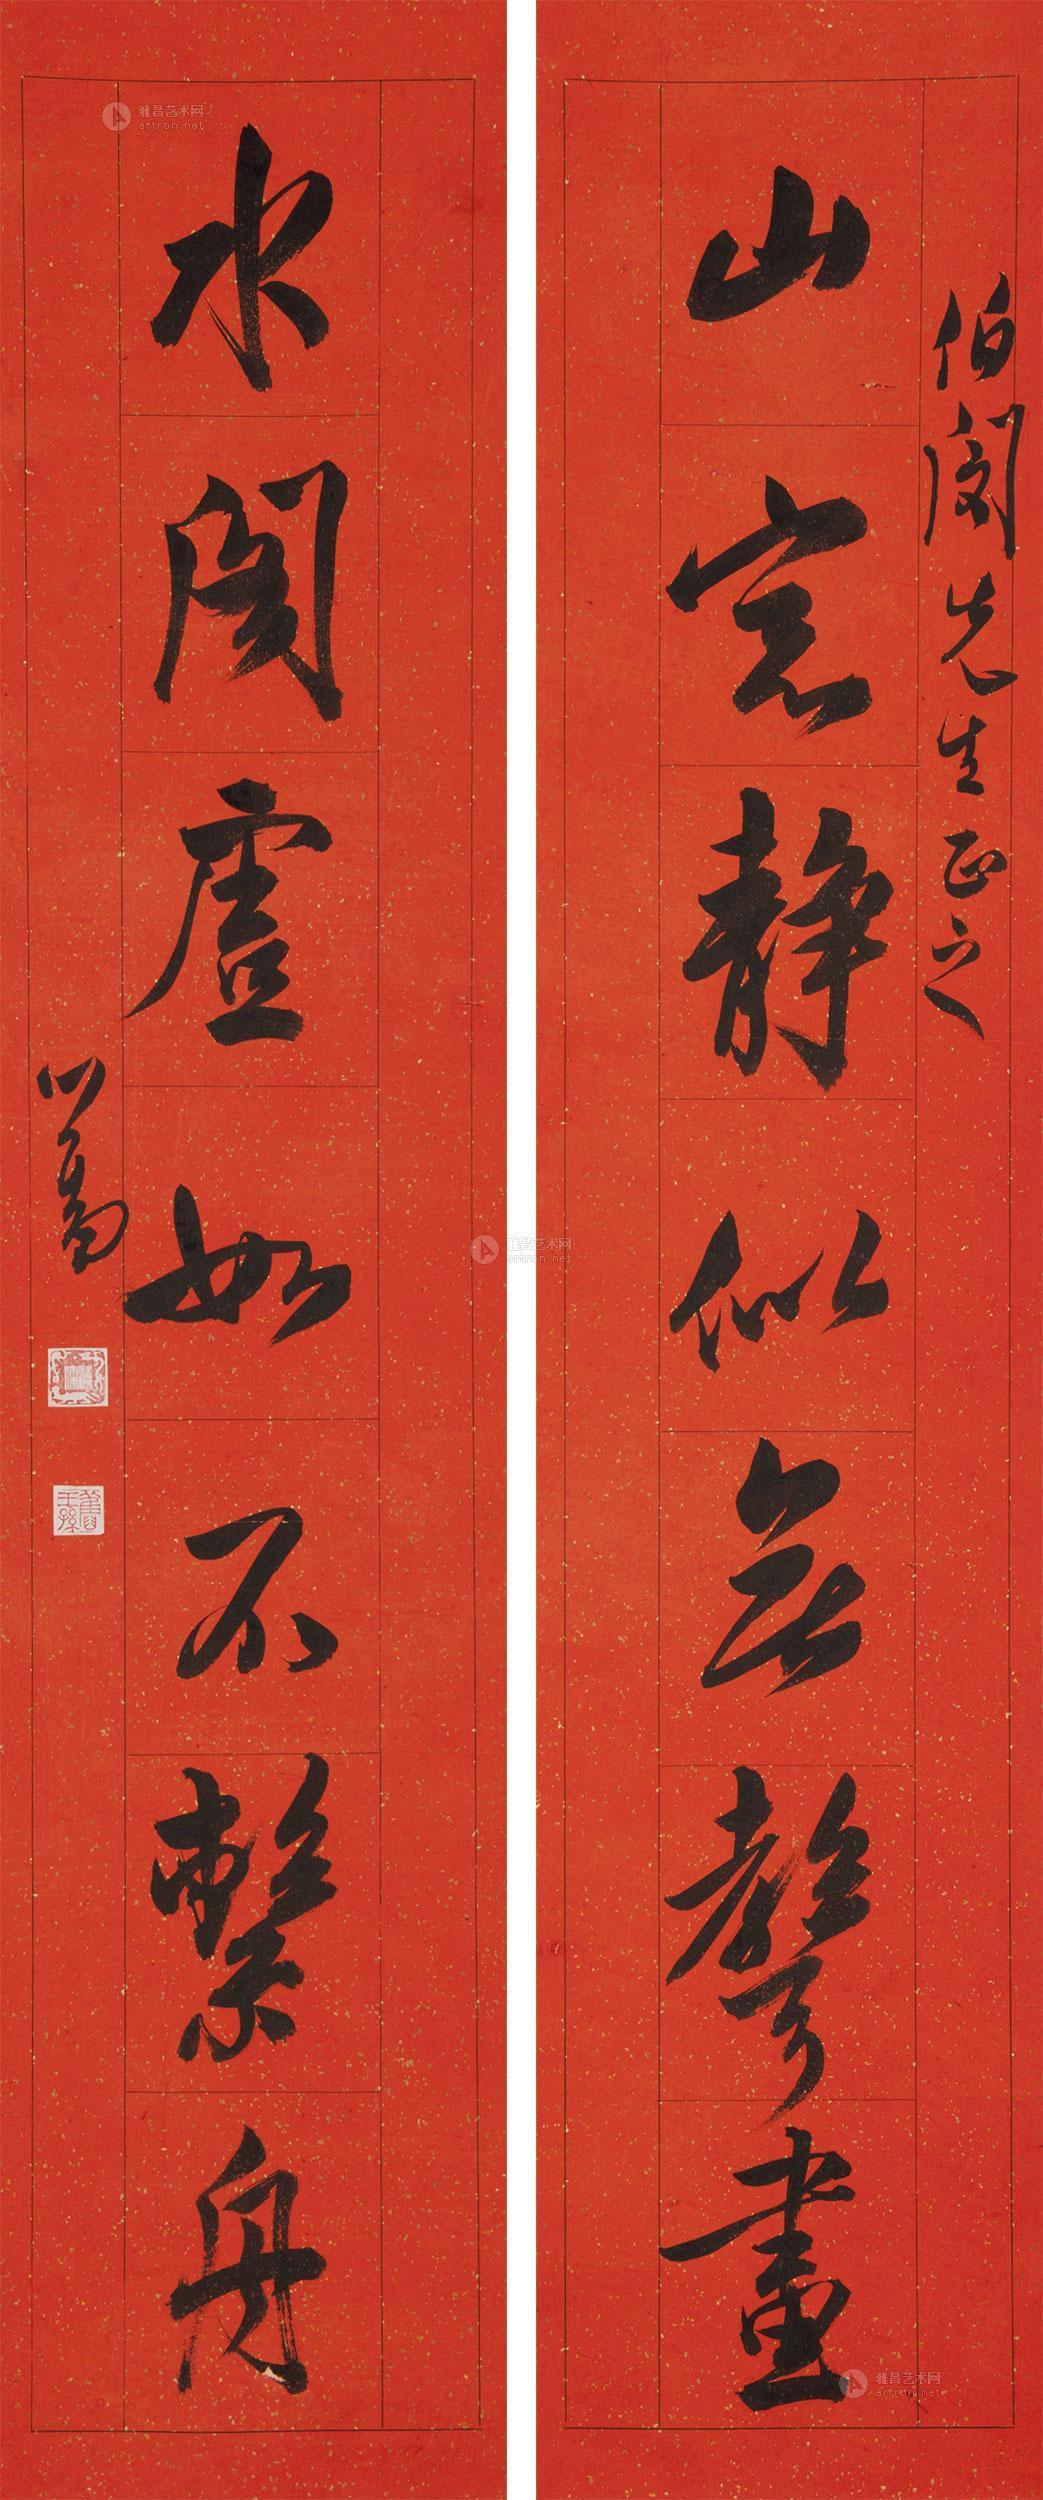 伯閔先生正之
山窓靜似無聲畫
水閣虛如不繫舟
心畬
舊王孫
雅昌艺术网
artron.net
雅昌艺术网
artron.net
雅昌艺术网
artron.net